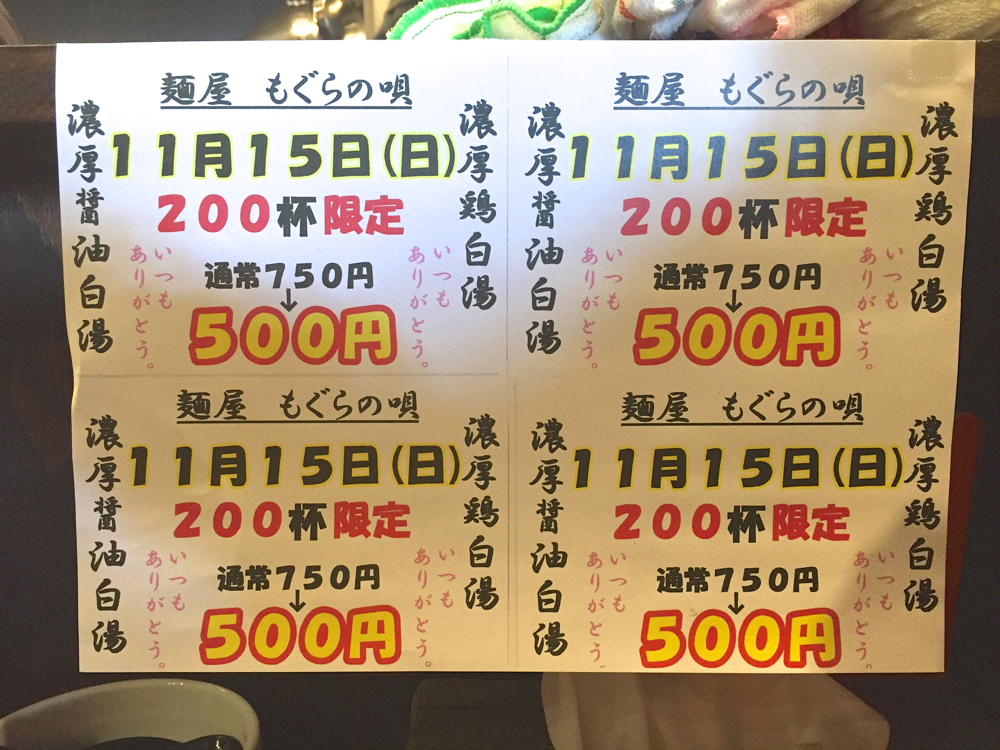 麺屋 もぐらの唄
濃厚鶏白湯
濃厚醤油白湯
11月15日(日)
200杯限定
通常750円
↓
500円
いつも
ありがとう。
いつも
ありがとう。
麺屋 もぐらの唄
濃厚鶏白湯
濃厚醤油白湯
11月15日(日)
200杯限定
通常750円
↓
500円
いつも
ありがとう。
いつも
ありがとう。
麺屋 もぐらの唄
濃厚鶏白湯
濃厚醤油白湯
11月15日(日)
200杯限定
通常750円
↓
500円
いつも
ありがとう。
いつも
ありがとう。
麺屋 もぐらの唄
濃厚鶏白湯
濃厚醤油白湯
11月15日(日)
200杯限定
通常750円
↓
500円
いつも
ありがとう。
いつも
ありがとう。